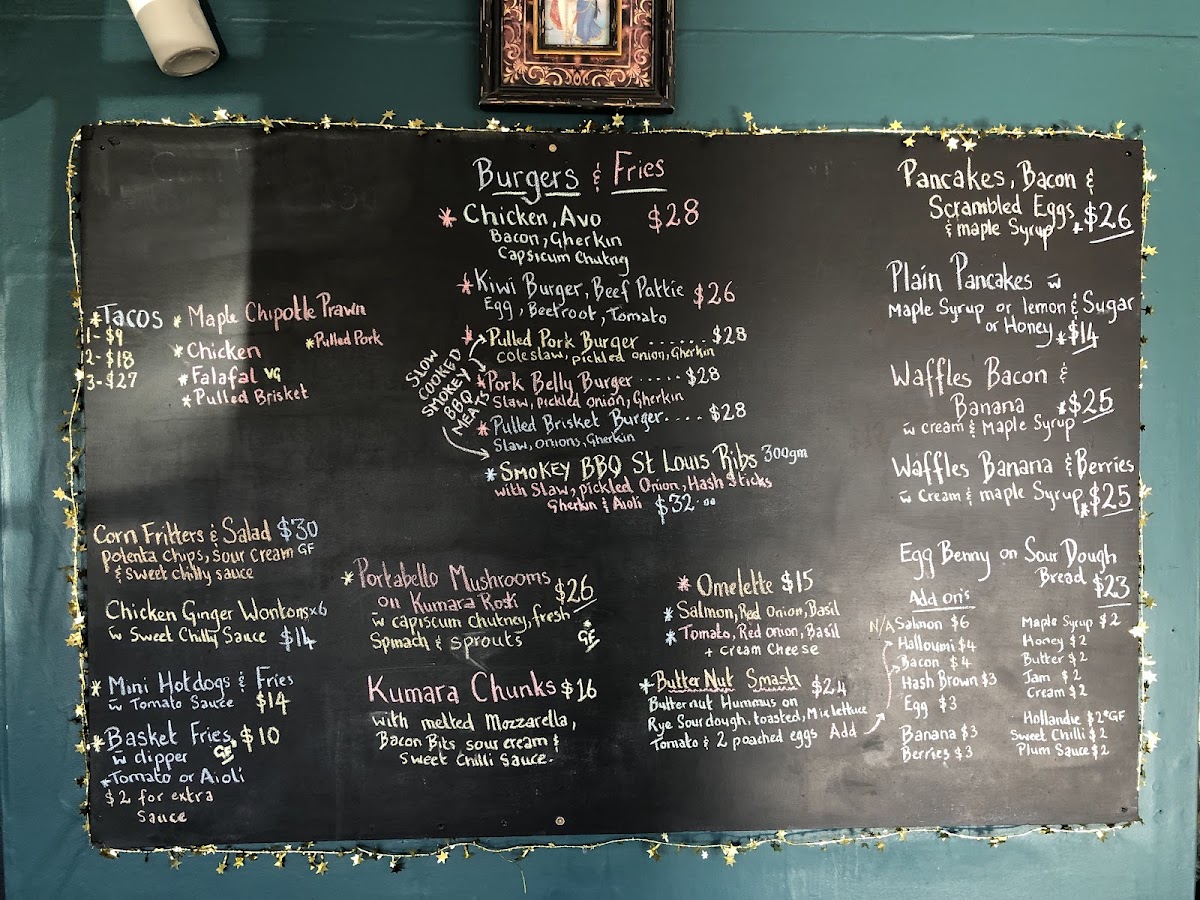 *Tacos
1- $9
2- $18
3- $27
* Maple Chipotle Prawn
* Chicken
*Pulled Pork
* Falafal VG
* Pulled Brisket
Corn Fritters & Salad $30
Polenta chips, sour cream GF
& sweet chilly sauce
Chicken Ginger Wontons x6
w̄ Sweet Chilly Sauce $14
* Mini Hotdogs & Fries
w̄ Tomato Sauce $14
* Basket Fries, $10
w̄ dipper GF
*Tomato or Aioli
$2 for extra
Sauce
Burgers & Fries
* Chicken, Avo $28
Bacon, Gherkin
Capsicum Chutng
* Kiwi Burger, Beef Pattie $26
Egg, Beetroot, Tomato
SLOW
COOKED
SMOKEY
BBQ
MEATS
* Pulled Pork Burger ...... $28
coleslaw, pickled onion, Gherkin
* Pork Belly Burger ..... $28
Slaw, pickled onion, Gherkin
* Pulled Brisket Burger.... $28
Slaw, onions, Gherkin
* Smokey BBQ St Louis Ribs 300gm
with Slaw, pickled Onion, Hash Sticks
Gherkin & Aioli $32.00
* Portabello Mushrooms $26
on Kumara Rosti
w̄ capiscum chutney, fresh
Spinach & sprouts * GF
Kumara Chunks $16
with melted Mozzarella,
Bacon Bits, sour cream &
sweet chilli sauce.
* Omelette $15
* Salmon, Red Onion, Basil
* Tomato, Red onion, Basil
+ cream cheese
* Butter Nut Smash $24
Butternut Humous on
Rye Sourdough, toasted, Mix lettuce
Tomato & 2 poached eggs Add
Pancakes, Bacon &
Scrambled Eggs
& maple Syrup * $26
Plain Pancakes w̄
Maple Syrup or lemon & Sugar
or Honey * $14
Waffles Bacon &
Banana * $25
w̄ cream & Maple Syrup
Waffles Banana & Berries
w̄ Cream & maple Syrup * $25
Egg Benny on Sour Dough
Bread $23
Add on's
N/A Salmon $6
Halloumi $4
Bacon $4
Hash Brown $3
Egg $3
Banana $3
Berries $3
Maple Syrup $2
Honey $2
Butter $2
Jam $2
Cream $2
Hollandie $2 *GF
Sweet Chilli $2
Plum Sauce $2